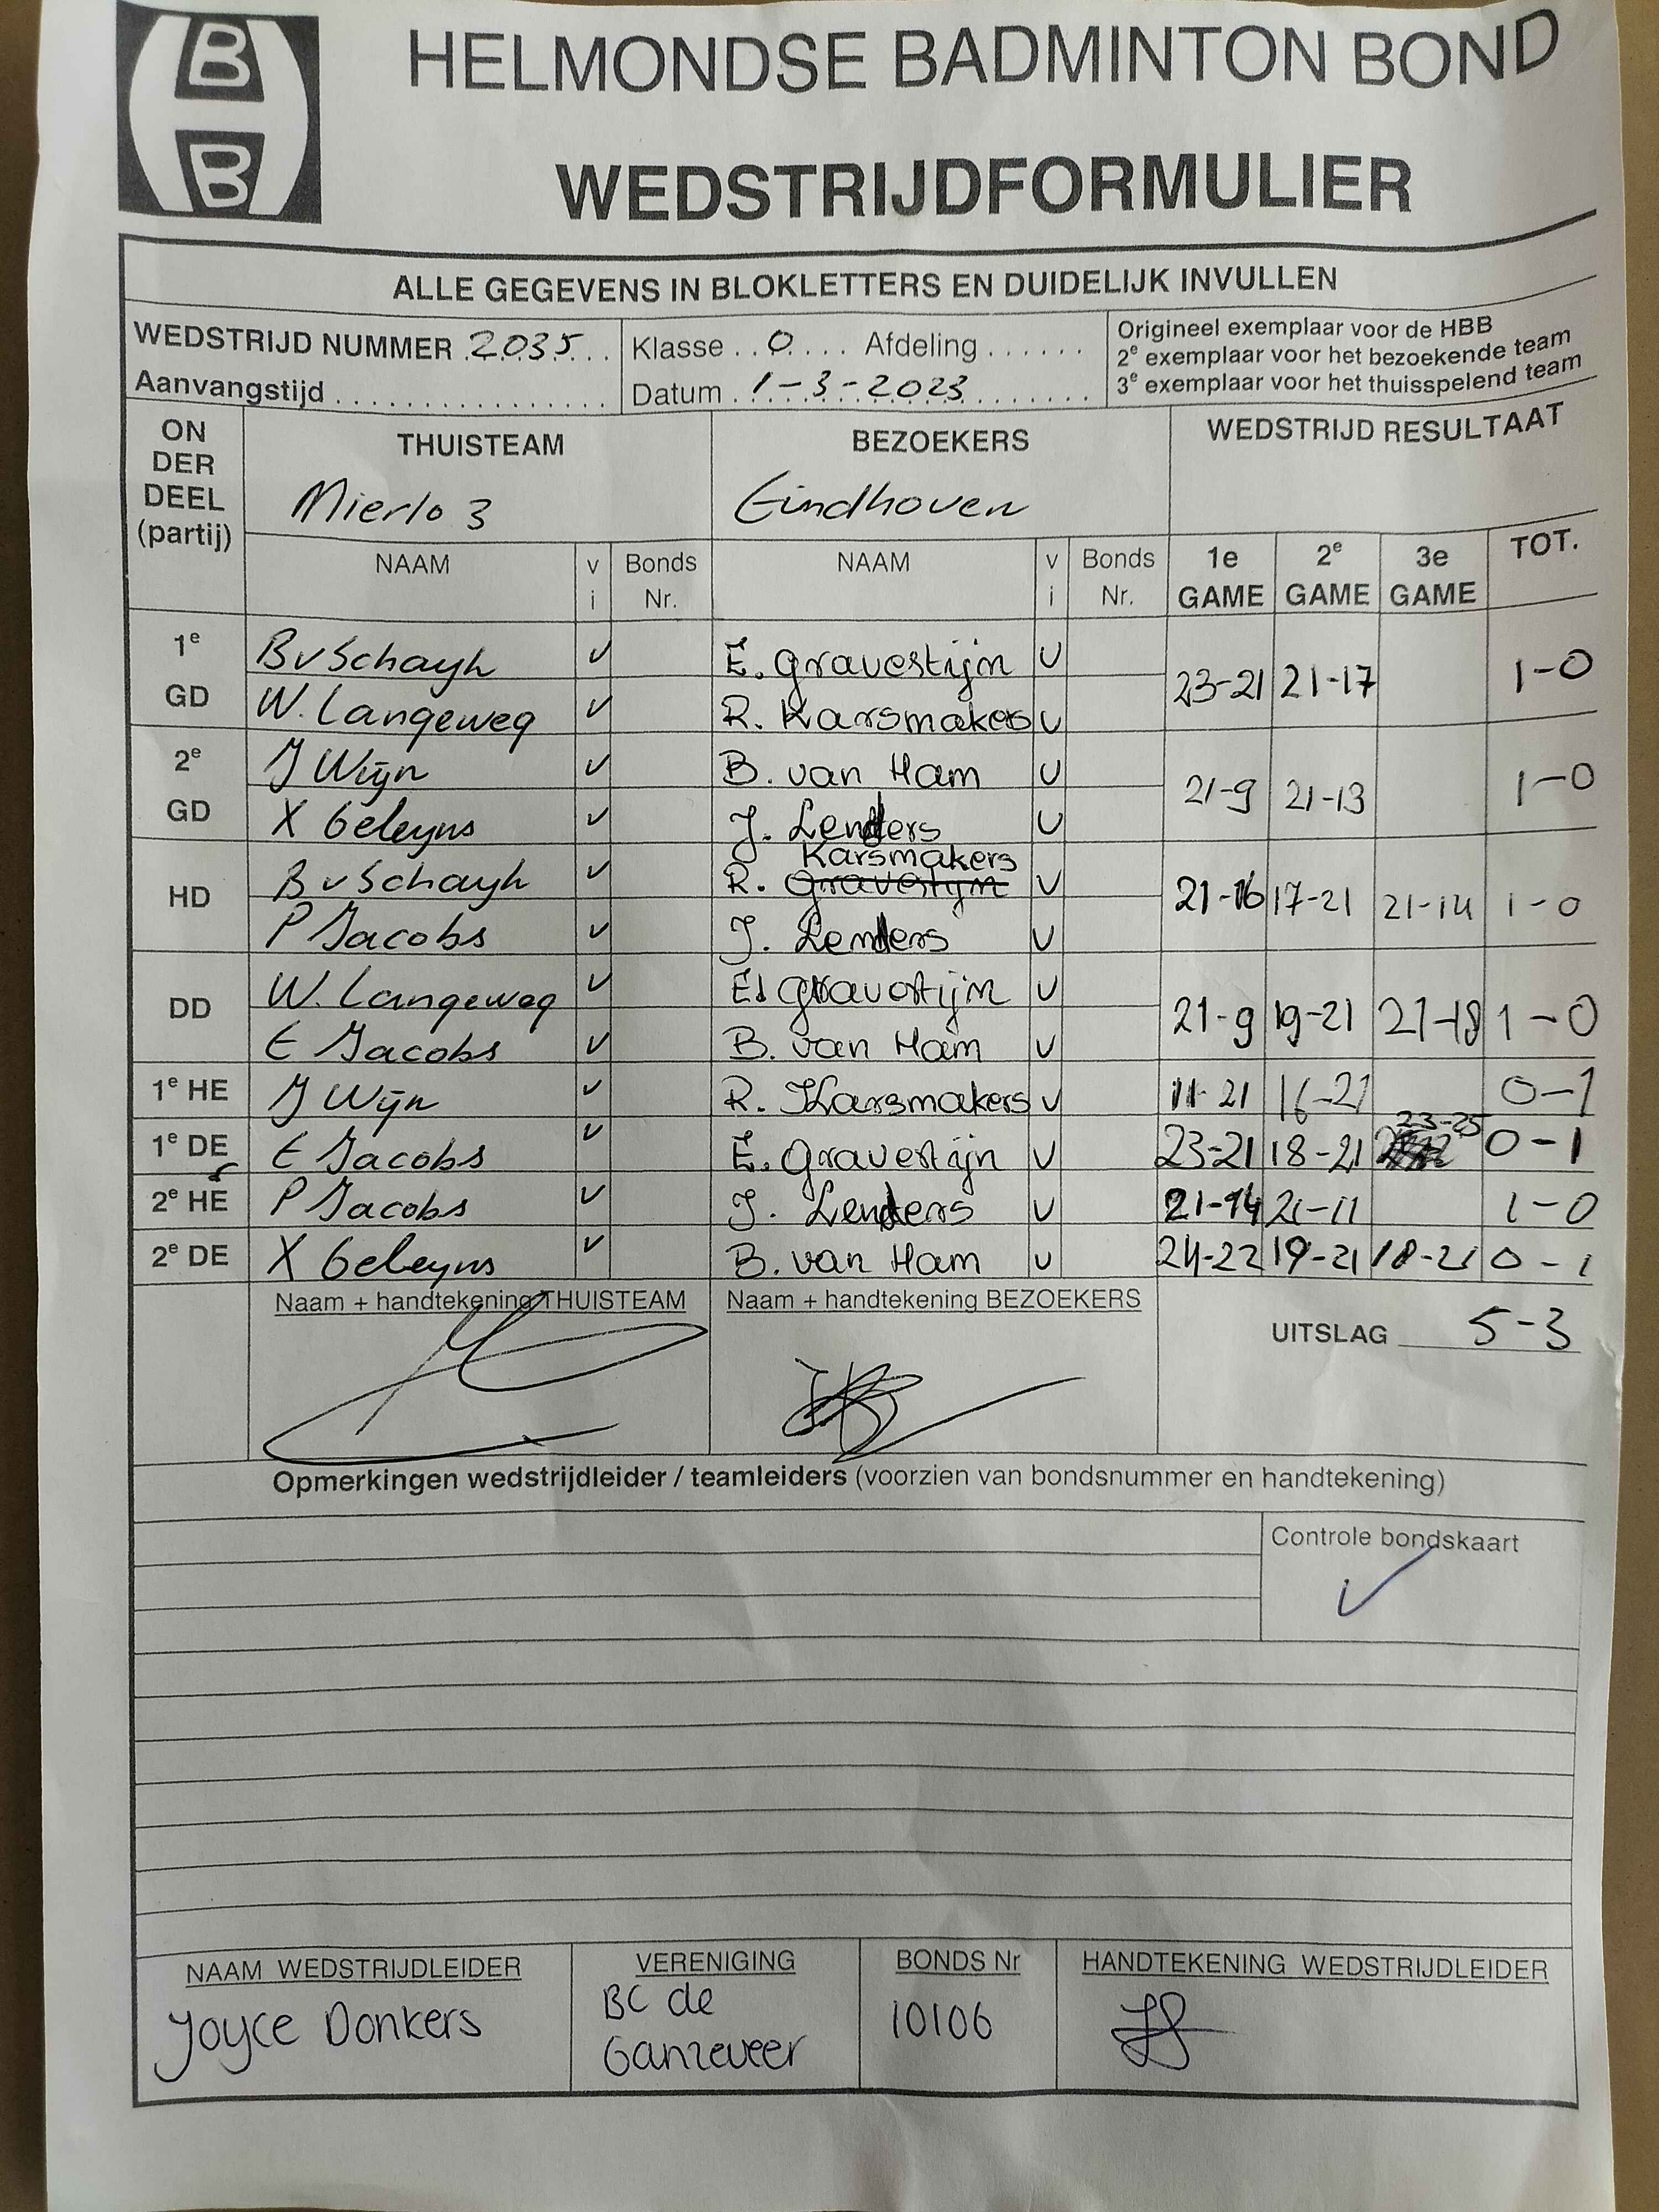 B
B
HELMONDSE BADMINTON BOND
WEDSTRIJDFORMULIER
ALLE GEGEVENS IN BLOKLETTERS EN DUIDELIJK INVULLEN
WEDSTRIJD NUMMER 2035 Klasse 0 Afdeling
Aanvangstijd Datum 1-3-2023
Origineel exemplaar voor de HBB
2e exemplaar voor het bezoekende team
3e exemplaar voor het thuisspelend team
ON DER DEEL (partij)
THUISTEAM BEZOEKERS WEDSTRIJD RESULTAAT
Mierlo 3 Eindhoven
NAAM v i Bonds Nr. NAAM v i Bonds Nr. 1e GAME 2e GAME 3e GAME TOT.
1e BvSchayh v E. Gravestijn v 23-21 21-17 1-0
GD W. Langeweg v R. Karsmakers v
2e J Wijn v B. van Ham v 21-9 21-13 1-0
GD X Geleyns v J. Lenders v
HD B v Schayh v R. Karsmakers v 21-16 17-21 21-14 1-0
P Jacobs v J. Lenders v
DD W. Langeweg v E. Gravestijn v 21-9 19-21 21-18 1-0
E Jacobs v B. van Ham v
1e HE J Wijn v R. Karsmakers v 11-21 16-21 0-1
1e DE E Jacobs v E. Gravestijn v 23-21 18-21 23-25 0-1
2e HE P Jacobs v J. Lenders v 21-14 21-11 1-0
2e DE X Geleyns v B. van Ham v 24-22 19-21 18-21 0-1
Naam + handtekening THUISTEAM Naam + handtekening BEZOEKERS
UITSLAG 5-3
Opmerkingen wedstrijdleider / teamleiders (voorzien van bondsnummer en handtekening)
Controle bondskaart
NAAM WEDSTRIJDLEIDER VERENIGING BONDS Nr HANDTEKENING WEDSTRIJDLEIDER
Joyce Donkers BC de Ganzeveer 10106